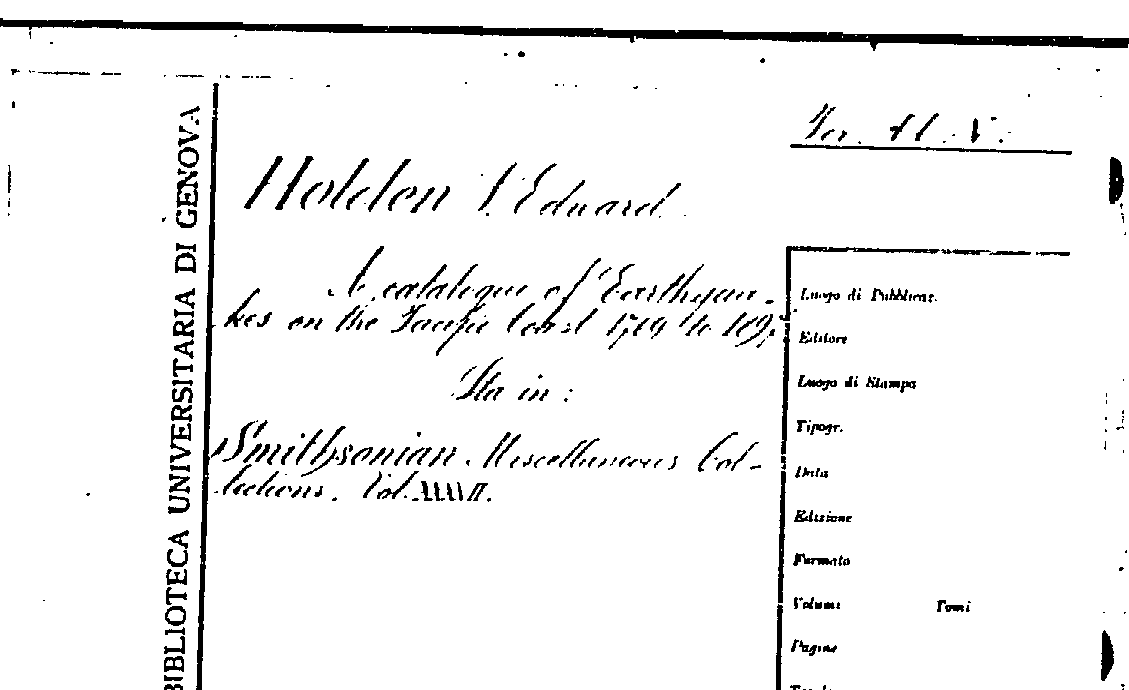 BIBLIOTECA UNIVERSITARIA DI GENOVA
Holden S. Eduard
A catalogue of Earthqua-
kes on the Pacific Coast 1769 to 1897
Sta in:
Smithsonian Miscellaneous Col-
lections. Vol.
Luogo di Pubblicaz.
Editore
Luogo di Stampa
Tipogr.
Data
Edizione
Formato
Volumi Tomi
Pagine